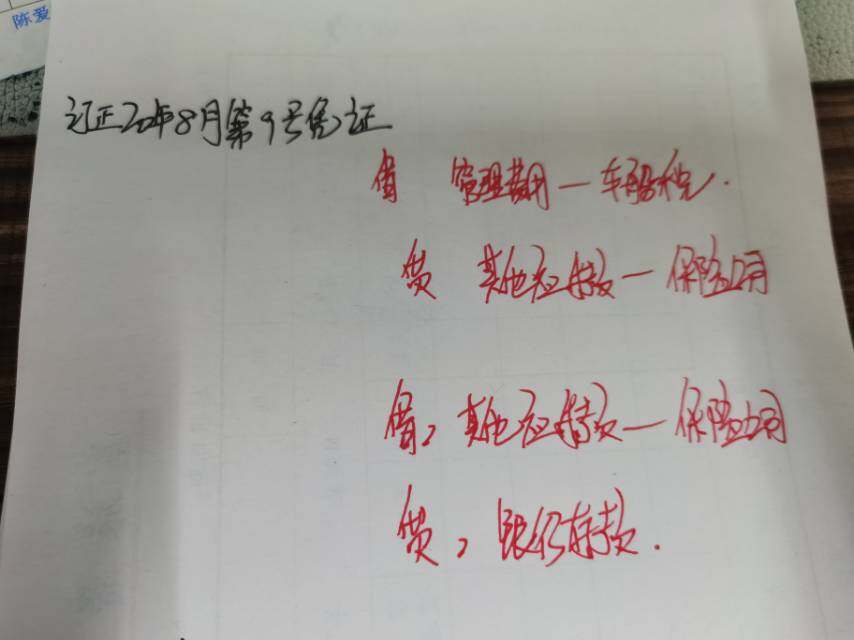 陈爱
订正20年8月第9号凭证
借 管理费用—车船税.
贷 其他应付款—保险公司
借, 其他应付款—保险公司
贷, 银行存款.